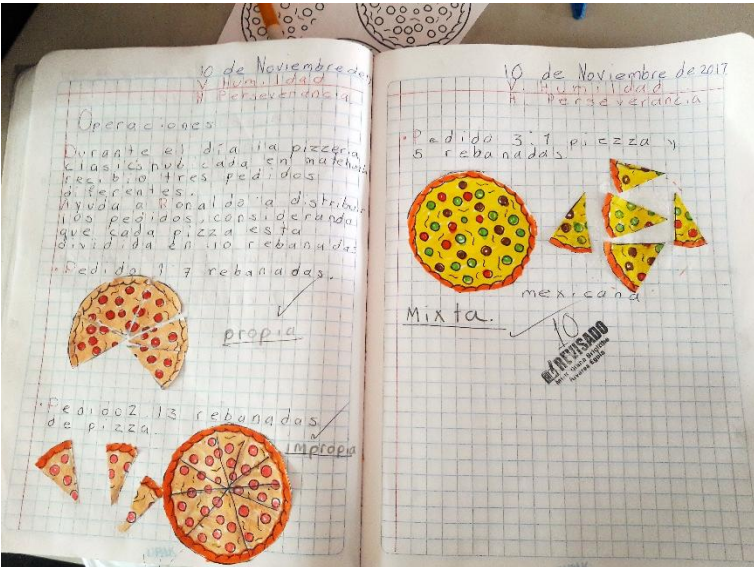 10 de Noviembre de
V. Humildad
H. Perseverancia
Operaciones
Durante el día la pizzería
recibio tres pedidos
diferentes.
Ayuda a Ronaldo a distribuir
los pedidos, considerando
que cada pizza esta
dividida en 10 rebanadas
• Pedido 1 7 rebanadas.
propia
• Pedido2 13 rebanadas
de pizza
Impropia
10 de Noviembre de 2017
V. Humildad
H. Perseverancia
• Pedido 3:1 piezza y
5 rebanadas
mexicana
Mixta.
10
REVISADO